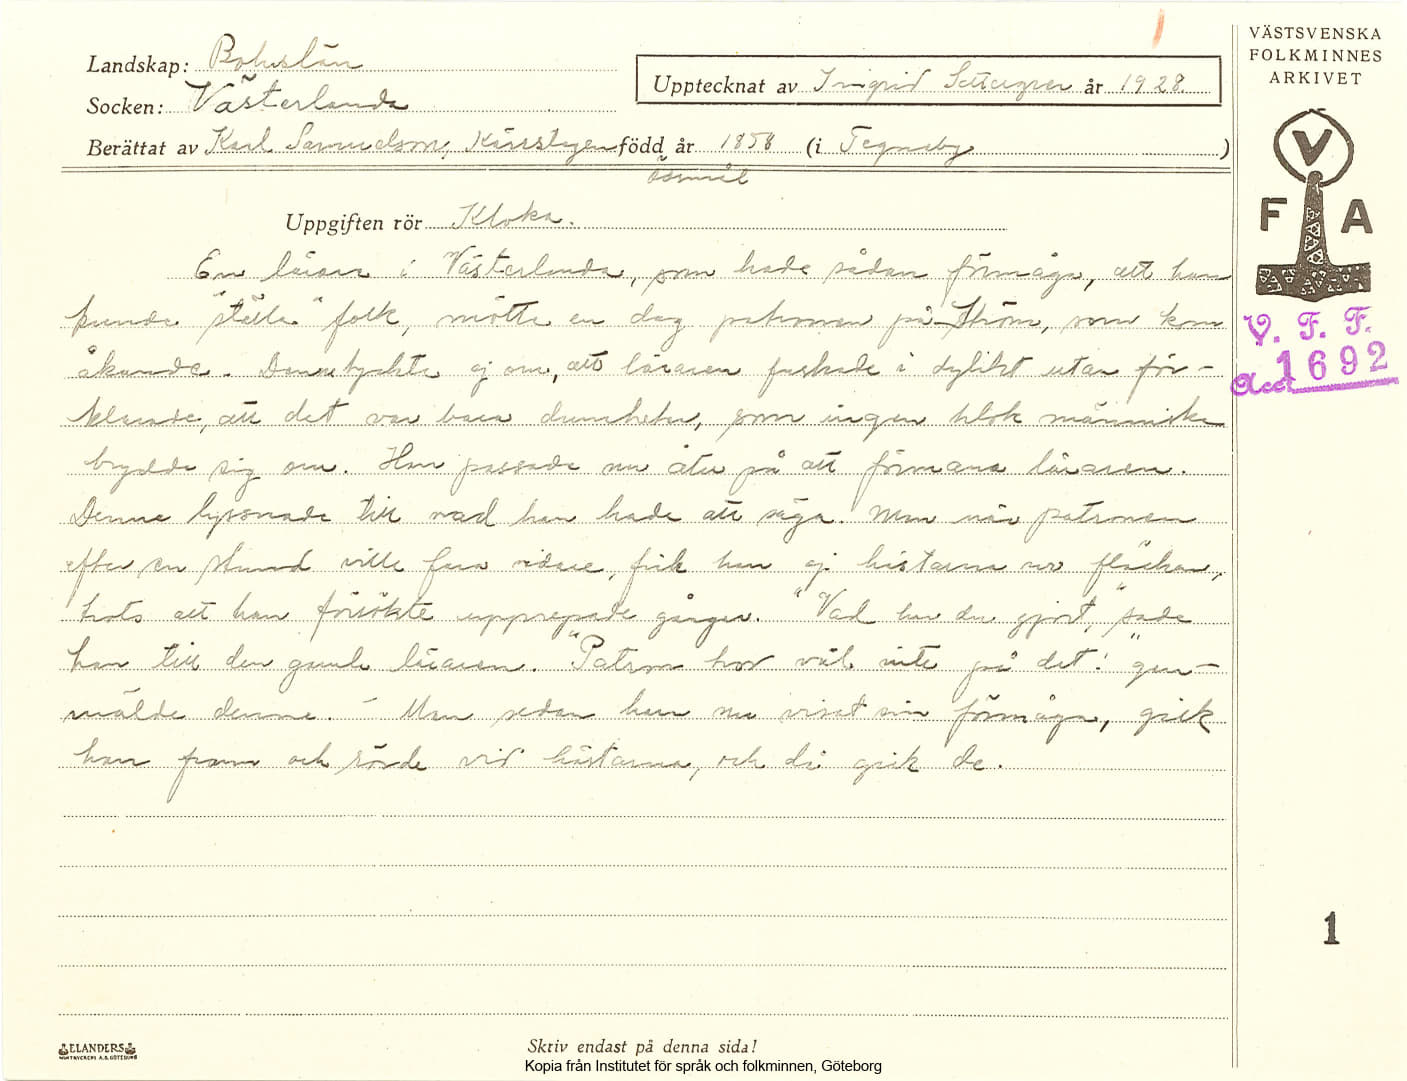 VÄSTSVENSKA
FOLKMINNES
ARKIVET
Landskap: Bohuslän
Upptecknat av Ingrid år 1928.
Socken: Västerlanda
Berättat av Karl Samuelson, född år 1858 (i Tegneby)
Uppgiften rör Kloka.
V
F A
V. F. F.
Acc. 1692
En lärare i Västerlanda, som hade sådan förmåga, att han
kunde "ställa" folk, mötte en dag patronen på Ström, som kom
åkande. Denne tyckte ej om, att läraren fuskade i dylikt utan för-
klarade, att det var bara dumheter, som ingen klok människa
brydde sig om. Han passade nu åter på att förmana läraren.
Denne lyssnade till vad han hade att säga. Men när patronen
efter en stund ville fara vidare, fick han ej hästarna ur fläcken,
trots att han försökte upprepade gånger. "Vad har du gjort," sade
han till den gamle läraren. "Patron tror väl inte på det!" gen-
mälde denne. - Men sedan han nu visat sin förmåga, gick
han fram och rörde vid hästarna, och då gick de.
1
ELANDERS
Skriv endast på denna sida!
Kopia från Institutet för språk och folkminnen, Göteborg